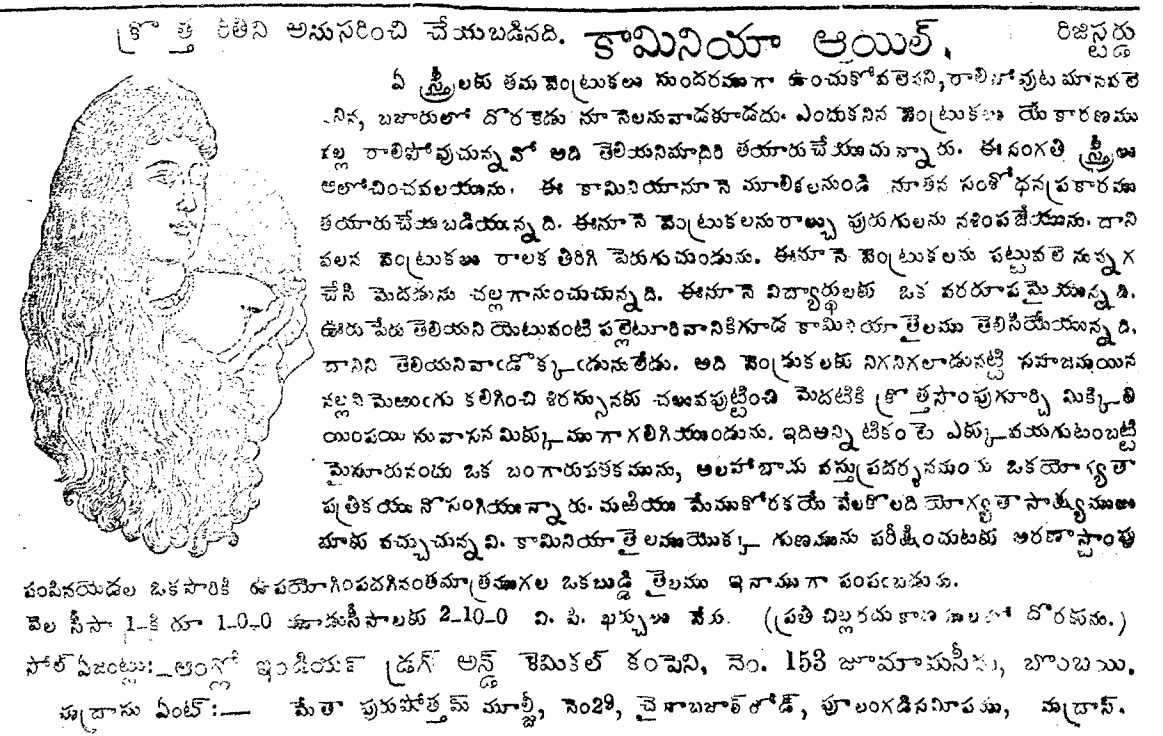 క్రొత్త రీతిని అనుసరించి చేయబడినది. కామినియా ఆయిల్. రిజిస్టర్డు
ఏ స్త్రీలకు తమ వెంట్రుకలు సుందరముగా ఉంచుకోవలెనని, రాలిపోవుట మానవలె
నిన, బజారులో దొరకెడు నూనెలనువాడకూడదు. ఎందుకనిన వెంట్రుకలు యే కారణము
వల్ల రాలిపోవుచున్నవో అది తెలియనిమాదిరి తయారుచేయుచున్నారు. ఈసంగతి స్త్రీలు
ఆలోచించవలయును. ఈ కామినియానూనె మూలికలనుండి నూతన సంశోధనప్రకారము
తయారుచేయబడియున్నది. ఈనూనె వెంట్రుకలనురాల్చు పురుగులను నశింపజేయును. దాని
వలన వెంట్రుకలు రాలక తిరిగి పెరుగుచుండును. ఈనూనె వెంట్రుకలను పట్టువలె నున్నగ
చేసి మెదడును చల్లగానుంచుచున్నది. ఈనూనె విద్యార్థులకు ఒక వరరూపమైయున్నది.
ఊరు పేరు తెలియని యెటువంటి పల్లెటూరివానికిగూడ కామినియాతైలము తెలిసియేయున్నది.
దానిని తెలియనివాఁడొక్కఁడునులేడు. అది వెండ్రుకలకు నిగనిగలాడునట్టి సహజమయిన
నల్లని మెఱుఁగు కలిగించి శిరస్సునకు చలువపుట్టించి మెదటికి క్రొత్తసొంపుగూర్చి మిక్కిలి
యింపయి సువాసన మిక్కుముగాగలిగియుండును. ఇదిఅన్నిటికంటె ఎక్కువయగుటంబట్టి
మైసూరునందు ఒక బంగారుపతకమును, అలహాబాదు వస్తుప్రదర్శనమందు ఒకయోగ్యతా
పత్రికయు నొసంగియున్నారు. మఱియు మేముకోరకయే వేలకొలది యోగ్యతాసాక్ష్యములు
మాకు వచ్చుచున్నవి. కామినియాతైలముయొక్క గుణమును పరీక్షించుటకు అరణాస్టాంపు
పంపినయెడల ఒకసారికి ఉపయోగింపదగినంతమాత్రముగల ఒకబుడ్డి తైలము ఇనాముగా పంపఁబడును.
వెల సీసా 1-కి రూ 1-0-0 మూడుసీసాలకు 2-10-0 వి. పి. ఖర్చులు వేరు. (ప్రతి చిల్లరదుకాణములలో దొరకును.)
సోల్ ఏజంట్లు:—ఆంగ్లో ఇండియన్ డ్రగ్ అన్డ్ కెమికల్ కంపెని, నెం. 153 జూమామసీదు, బొంబయి.
మద్రాసు ఏంట్:— మేతా పురుషోత్తమ్ మూల్జీ, నెం29, చైనాబజార్‌రోడ్, పూలంగడిసమీపము, మద్రాస్.